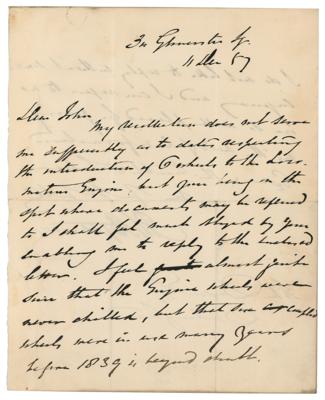 34 Gloucester Sq.
11 Dec 57
Dear John
My recollection does not serve
me sufficiently as to dates respecting
the introduction of 6 wheels to the Loco-
motive Engine, but you being on the
spot where documents may be referred
to I shall feel much obliged by your
enabling me to reply to the enclosed
letter. I feel almost quite
sure that the Engine wheels were
never chilled, but that six coupled
wheels were in use many years
before 1839 is beyond doubt.